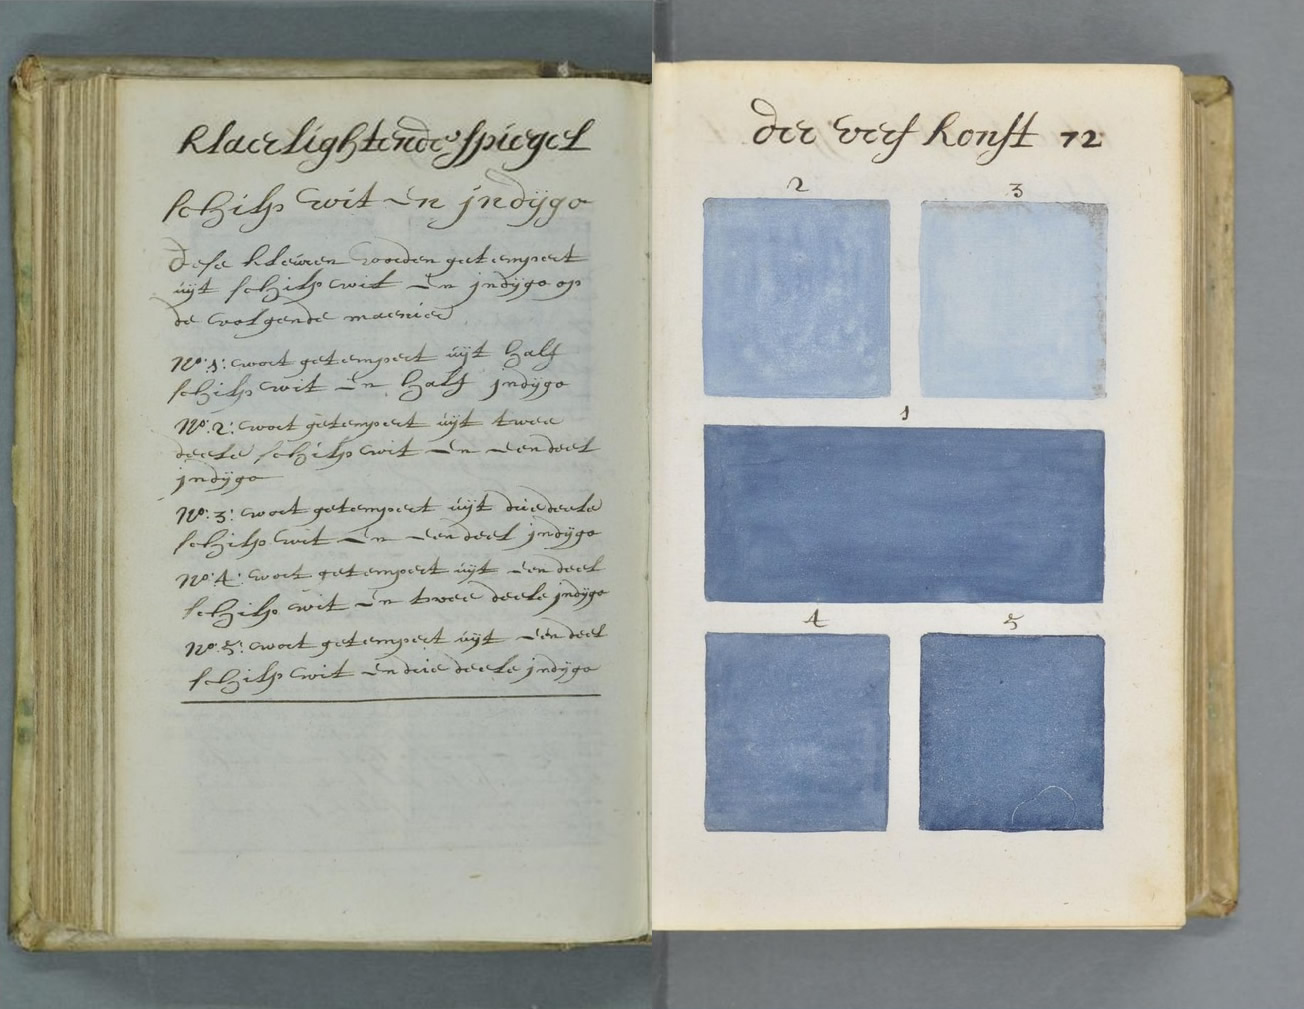 klaerlightende spiegel
schilp wit en jndijgo
dese kleuren worden getempert
uijt schilp wit en jndijgo op
de volgende manier
No: 1: wort getempert uijt half
schilp wit en half jndijgo
No: 2: wort getempert uijt twee
deele schilp wit en een deel
jndijgo
No: 3: wort getempert uijt drie deele
schilp wit en een deel jndijgo
No: 4: wort getempert uijt een deel
schilp wit en twee deele jndijgo
No: 5: wort getempert uijt een deel
schilp wit en drie deele jndijgo
der verf konst 72
2 3
1
4 5